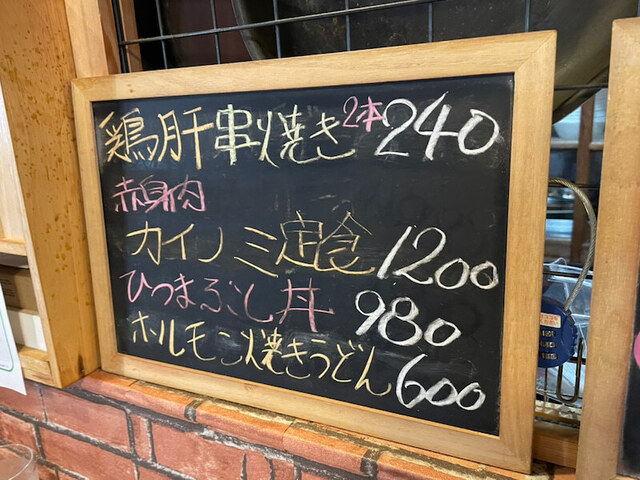 鶏肝串焼き2本240
赤身肉
カイノミ定食1200
ひつまぶし丼980
ホルモン焼きうどん600